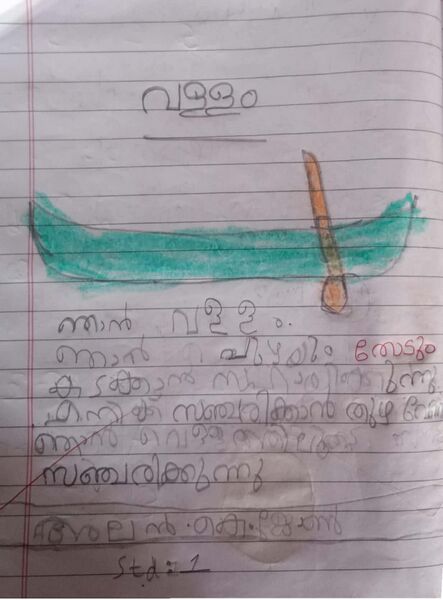 വള്ളം
ഞാൻ വള്ളം.
ഞാൻ പുഴയും തോടും
കടക്കാൻ സഹായിക്കുന്നു
എനിക്ക് സഞ്ചരിക്കാൻ തുഴ വേണം
ഞാൻ വെള്ളത്തിലൂടെ
സഞ്ചരിക്കുന്നു
അലൻ.കെ.ജോൺ
Std:1